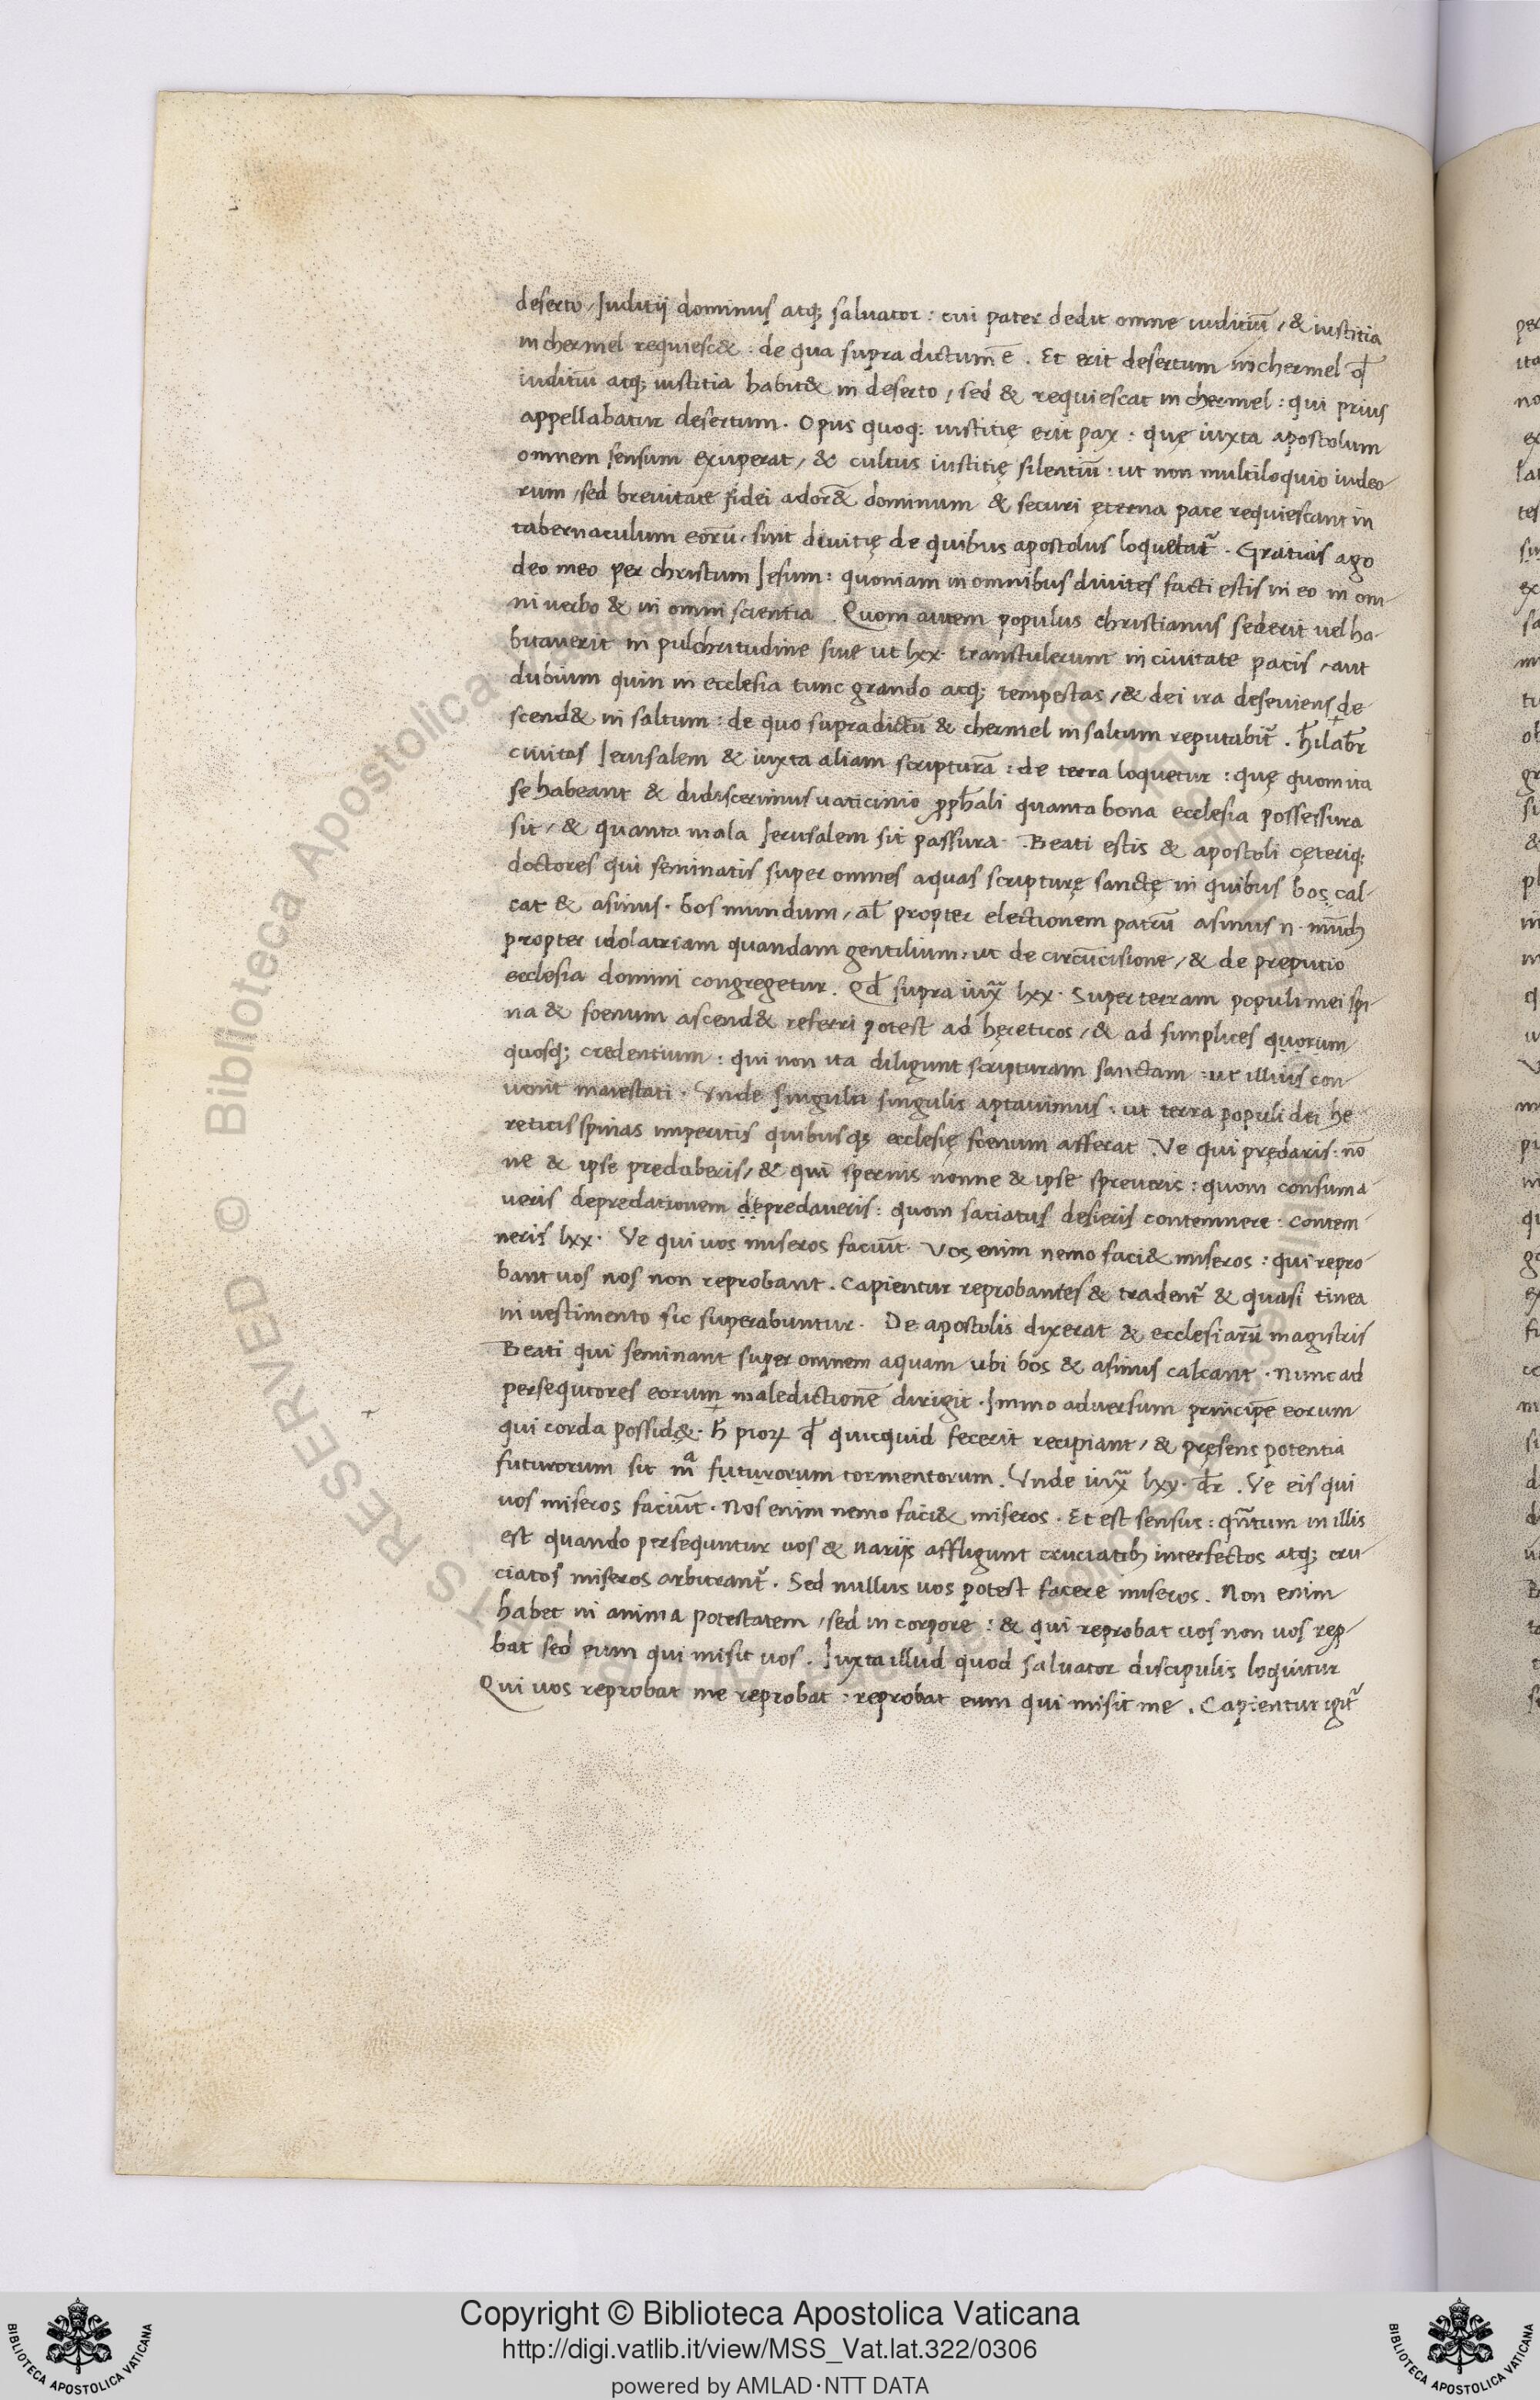 deserto / Juditij dominus atq; saluator : cui pater dedit omne iuditiū / & iustitia
in chermel requiesc& . de qua supra dictum ē . Et erit desertum in chermel qđ
iuditiū atq; iustitia habit& in deserto / sed & requiescat in chermel : qui prius
appellabatur desertum . Opus quoq; iustitię erit pax : quę iuxta apostolum
omnem sensum exuperat / & cultus iustitię silentiū : ut non multiloquio iudeo-
rum / sed breuitate fidei ador& dominum & securi ęterna pace requiescant in
tabernaculum eorū . sint diuitię de quibus apostolus loquebat̃ . Gratias ago
deo meo per christum Jesum : quoniam in omnibus diuites facti estis in eo in om-
ni uerbo & in omni scientia . Quom autem populus christianus sederit uel ha-
bitauerit in pulchritudine siue ut lxx . transtulerunt in ciuitate pacis / aut
dubium quin in ecclesia tunc grando atq; tempestas / & dei ira deseuiens de-
scend& in saltum : de quo supra dictū & chermel in saltum reputabit̃ .
ciuitas Jerusalem & iuxta aliam scripturā : de terra loquetur : quę quom ita
se habeant & didiscerimus uaticinio ꝓph̄ali quanta bona ecclesia possessura
sit / & quanta mala Jerusalem sit passura . Beati estis & apostoli cęteriq;
doctores qui seminatis super omnes aquas scripturę sanctę in quibus bos cal-
cat & asinus . bos mundum / al̄ propter electionem patrū asinus n .
propter idolatriam quandam gentilium : ut de circūcisione / & de preputio
ecclesia domini congregetur . Qđ supra iux̃ lxx . Super terram populi mei spi-
na & foenum ascend& referri potest ad hęreticos / & ad simplices quorum
quosq; credentium : qui non ita diligunt scripturam sanctam : ut illius con-
uenit maiestati . Vnde singula singulis aptauimus : ut terra populi dei he-
reticis spinas imperitis quibusq; ecclesię foenum afferat . Ve qui prędaris : nō-
ne & ipse predaberis / & qui spernis nonne & ipse spreueris : quom consuma-
ueris depredationem depredaueris : quom satiatus desieris contemnere : contem-
neris lxx . Ve qui uos miseros faciūt . Vos enim nemo faci& miseros : qui repro-
bant uos nos non reprobant . Capientur reprobantes & tradent̃ & quasi tinea
in uestimento sic superabuntur . De apostolis dixerat & ecclesiarū magistris
Beati qui seminant super omnem aquam ubi bos & asinus calcant . Nunc ad
persequtores eorum maledictionē dirigit . Immo aduersum principē eorum
qui corda possid& . h̄ pioꝝ qđ quicquid fecerit recipiant / & pręsens potentia
futurorum sit mª futurorum tormentorum . Vnde iux̃ lxx . dr̄ . Ve eis qui
uos miseros faciūt . Nos enim nemo faci& miseros . Et est sensus : qñtum in illis
est quando persequntur uos & uarijs affligunt cruciatib; interfectos atq; cru-
ciatos miseros arbitrant̃ . Sed nullus uos potest facere miseros . Non enim
habet in anima potestatem / sed in corpore : & qui reprobat uos non uos rep̱-
bat sed eum qui misit uos . Juxta illud quod saluator discipulis loquitur
Qui uos reprobat me reprobat : reprobat eum qui misit me . Capientur igit̃
RESERVED © Biblioteca Apostolica Vaticana
Copyright © Biblioteca Apostolica Vaticana
http://digi.vatlib.it/view/MSS_Vat.lat.322/0306
powered by AMLAD·NTT DATA
BIBLIOTECA APOSTOLICA VATICANA
BIBLIOTECA APOSTOLICA VATICANA